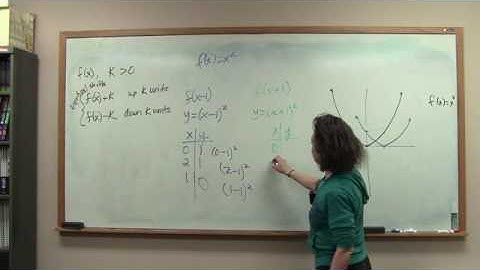 f(x)=x²
f(x), K>0
vertical shifts
f(x)+K up K units
f(x)-K down K units
f(x-1)
y=(x-1)²
x y
0 1 (0-1)²
2 1 (2-1)²
1 0 (1-1)²
f(x+1)
y=(x+1)²
x y
0
f(x)=x²